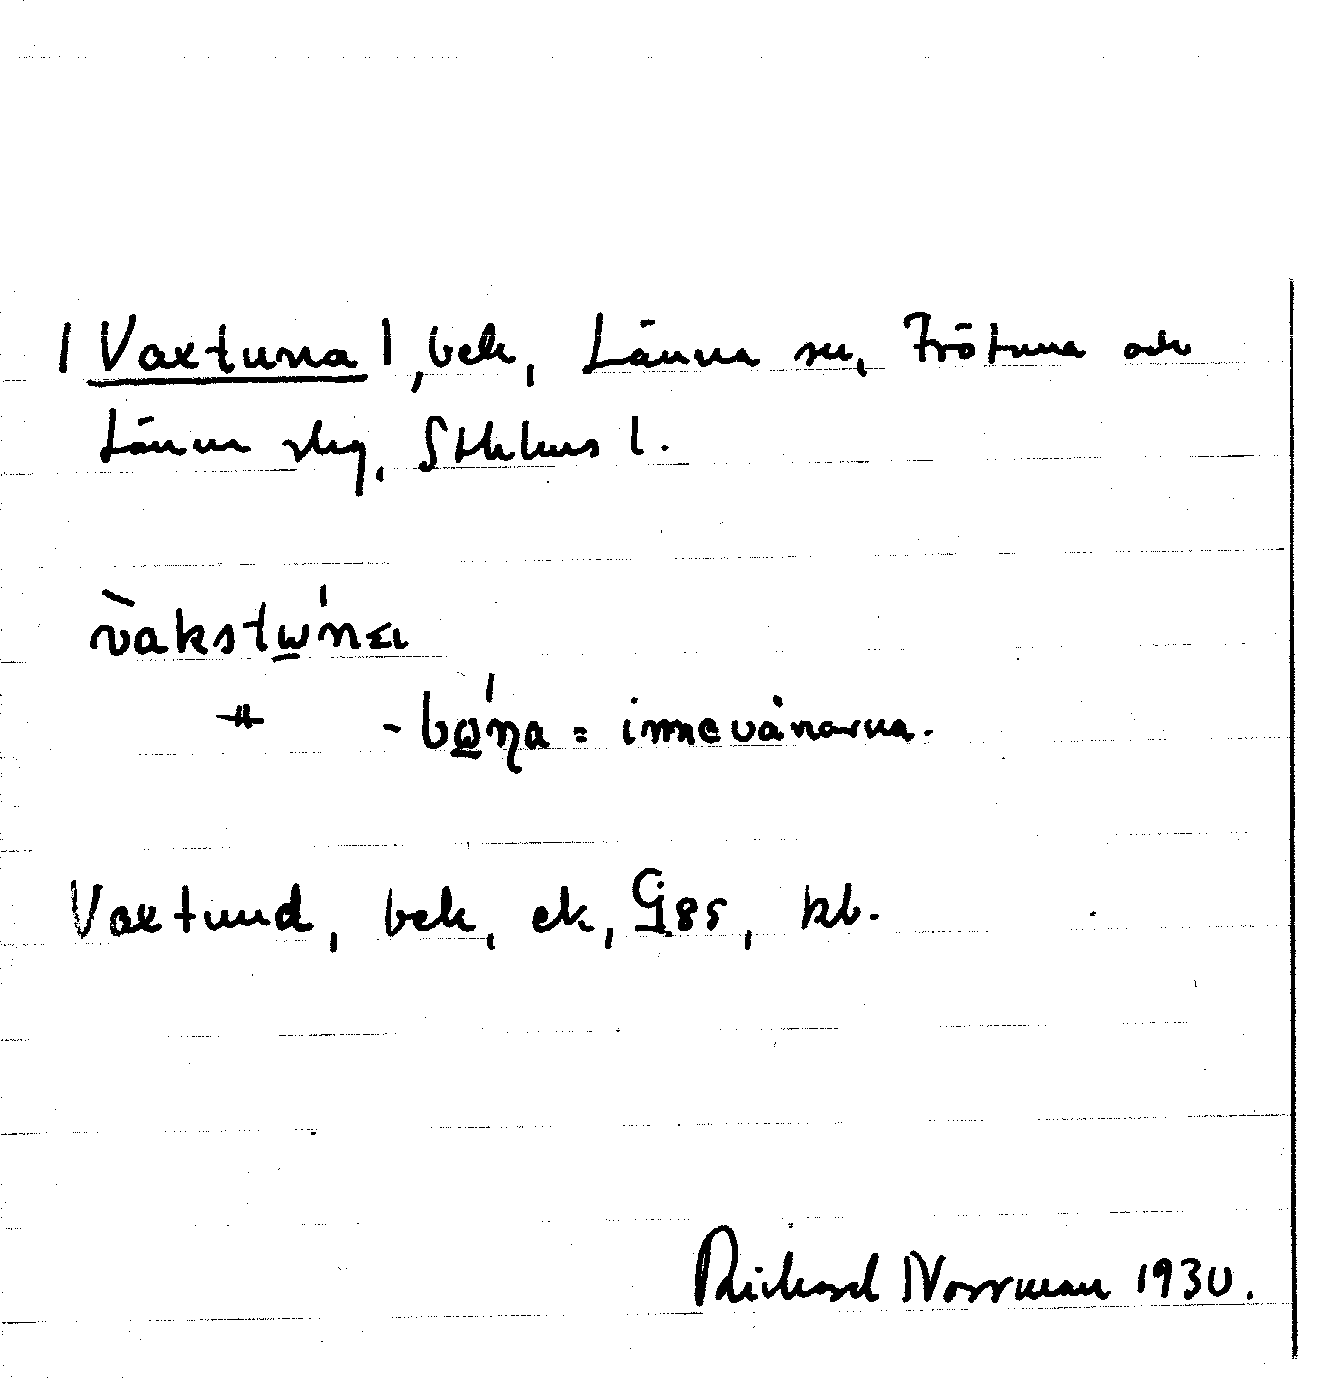 | Vaxtuna |, bek, Länna sn, Frötuna och
Länna skg, Sthlms l.
v̀akstώ̲na
-〃- -bώ̲ŋa = innevånarna.
Vaxtund, bek, ek, G85, kb.
Richard Norrman 1930.